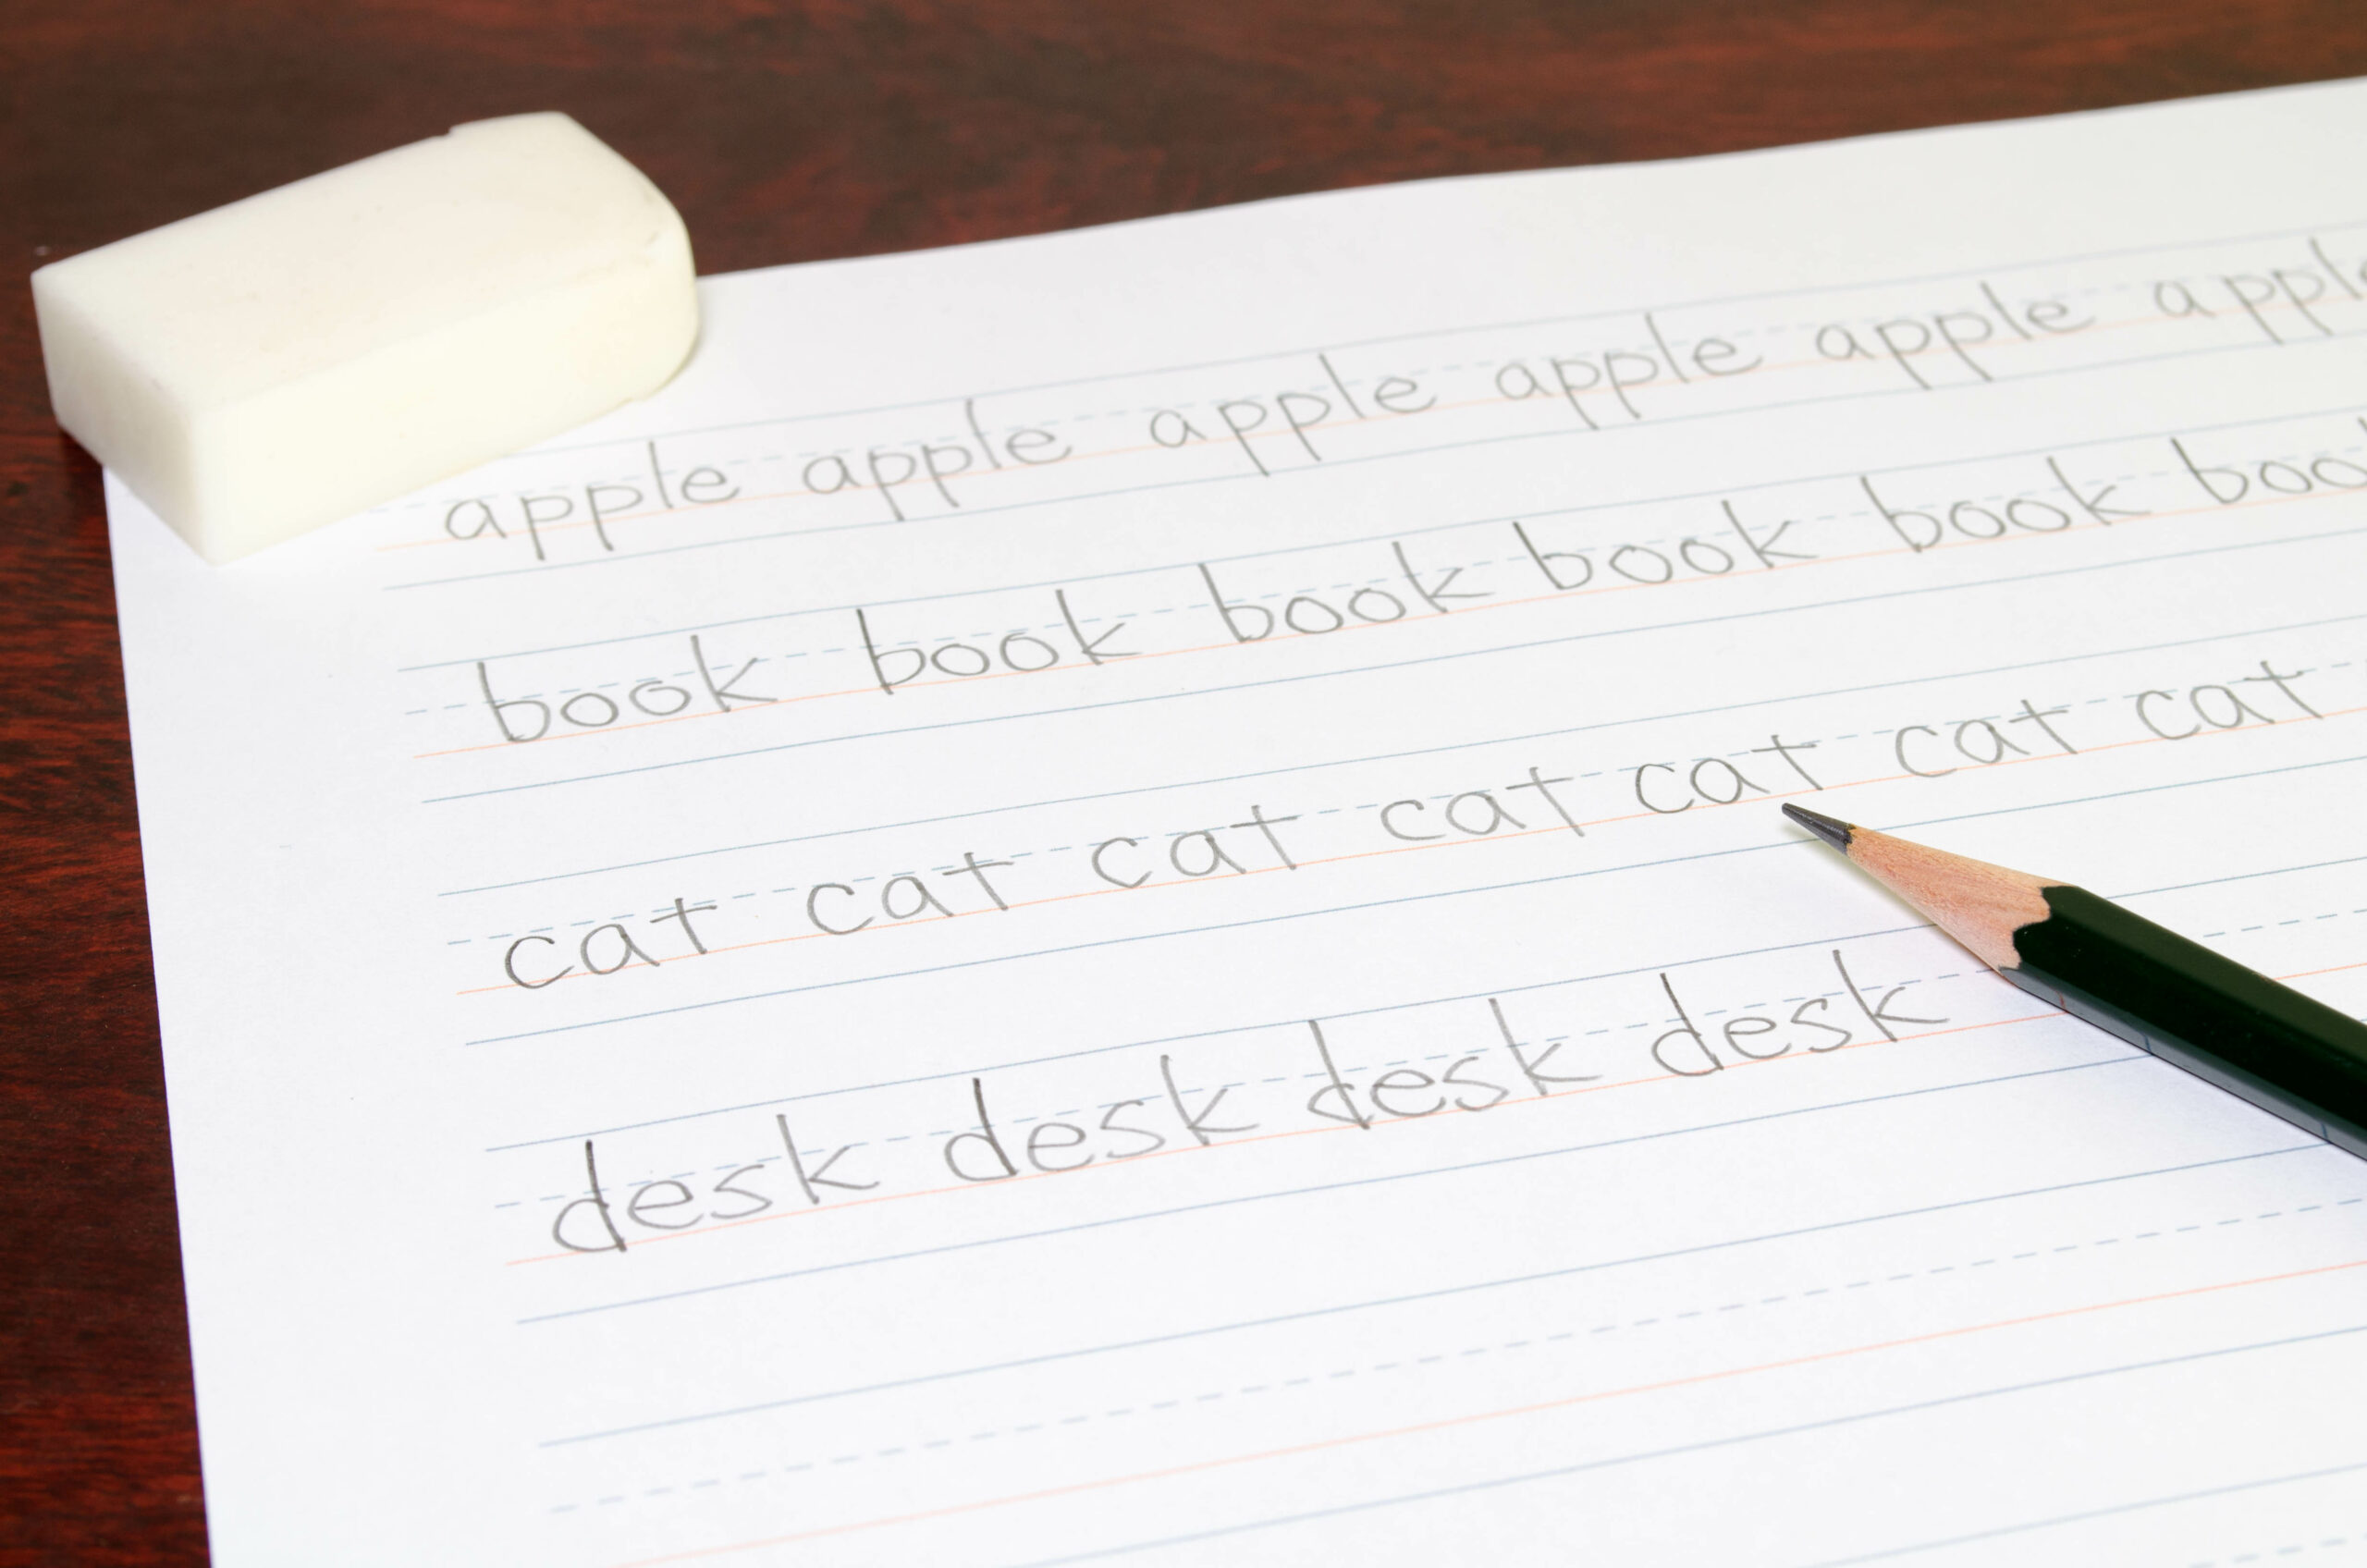 apple apple apple apple apple apple
book book book book book boo
cat cat cat cat cat cat cat
desk desk desk desk